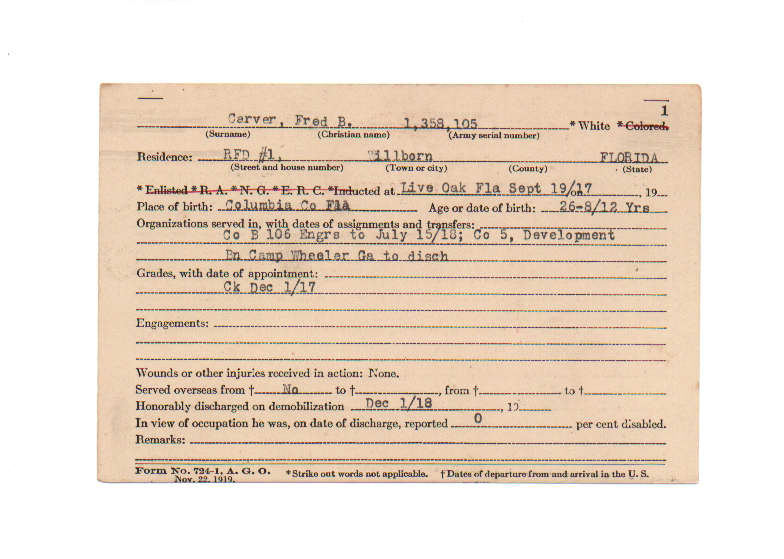 1
Carver, Fred B. 1,358,105 * White * Colored.
(Surname) (Christian name) (Army serial number)
Residence: RFD #1, Willborn FLORIDA
(Street and house number) (Town or city) (County) (State)
* Enlisted * R. A. * N. G. * E. R. C. * Inducted at Live Oak Fla Sept 19/17 , 19
Place of birth: Columbia Co Fla Age or date of birth: 26-8/12 Yrs
Organizations served in, with dates of assignments and transfers:
Co B 106 Engrs to July 15/18; Co 5, Development
Bn Camp Wheeler Ga to disch
Grades, with date of appointment:
Ck Dec 1/17
Engagements:
Wounds or other injuries received in action: None.
Served overseas from † No to † , from † to †
Honorably discharged on demobilization Dec 1/18 , 19
In view of occupation he was, on date of discharge, reported 0 per cent disabled.
Remarks:
Form No. 724-1, A. G. O. * Strike out words not applicable. † Dates of departure from and arrival in the U. S.
Nov. 22, 1919.